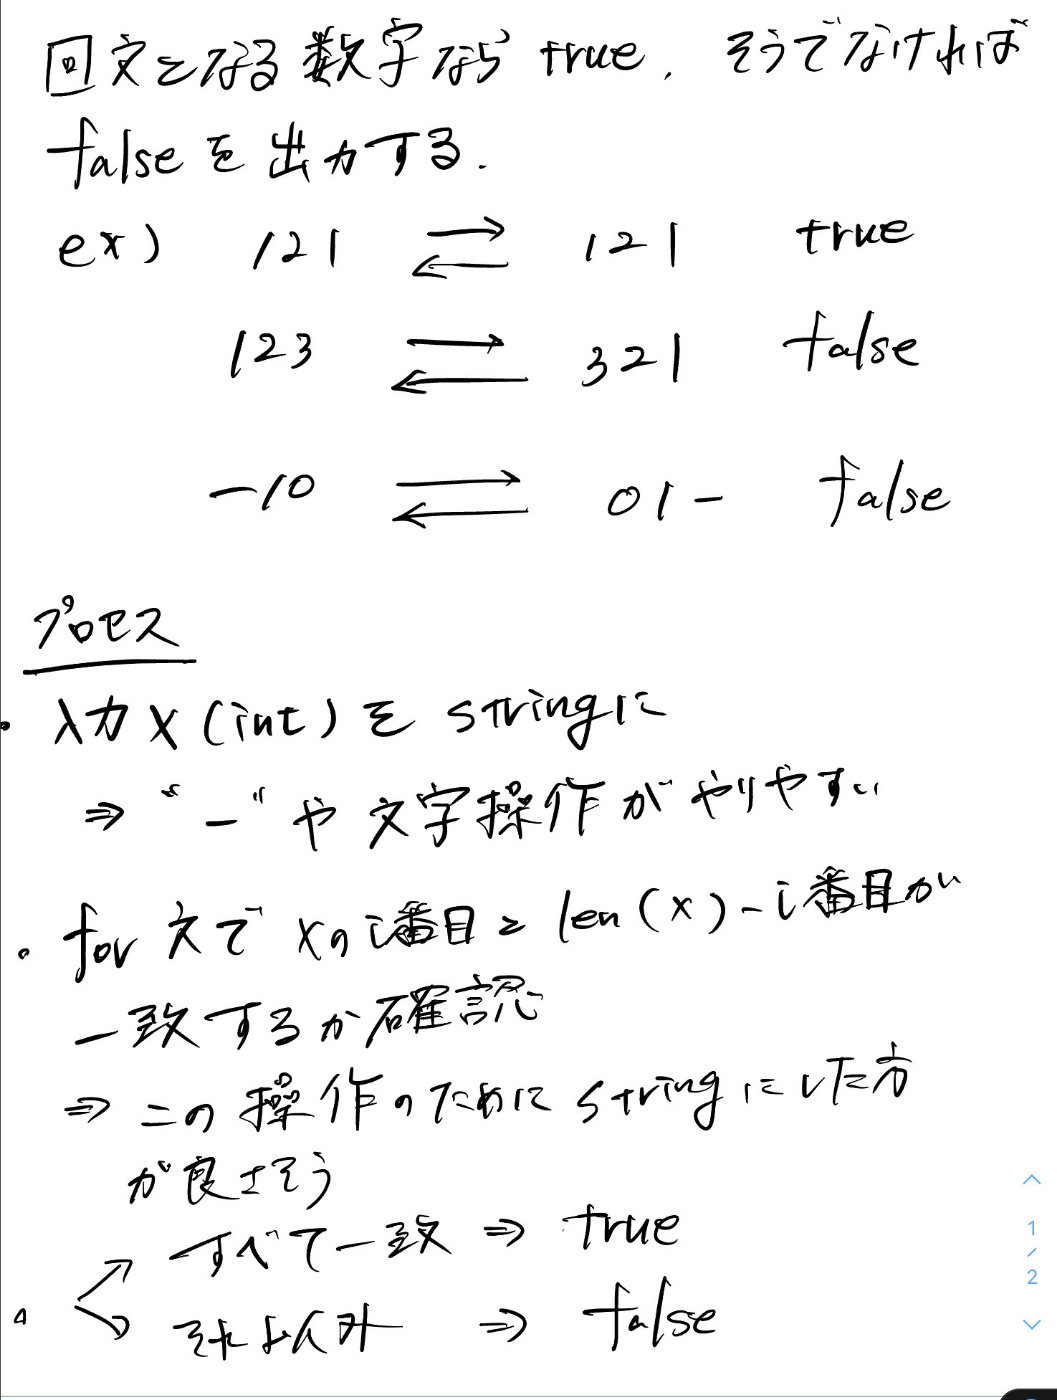 回文となる数字なら true, そうでなければ
falseを出力する.
ex) 121 ⇄ 121 true
123 ⇄ 321 false
-10 ⇄ 01- false
プロセス
・入力 x (int) を stringに
⇒ "-" や 文字操作がやりやすい
・for文で xのi番目と len(x)-i番目が
一致するか確認
⇒ この操作のために stringにした方
が良さそう
すべて一致 ⇒ true
それ以外 ⇒ false
1
/
2